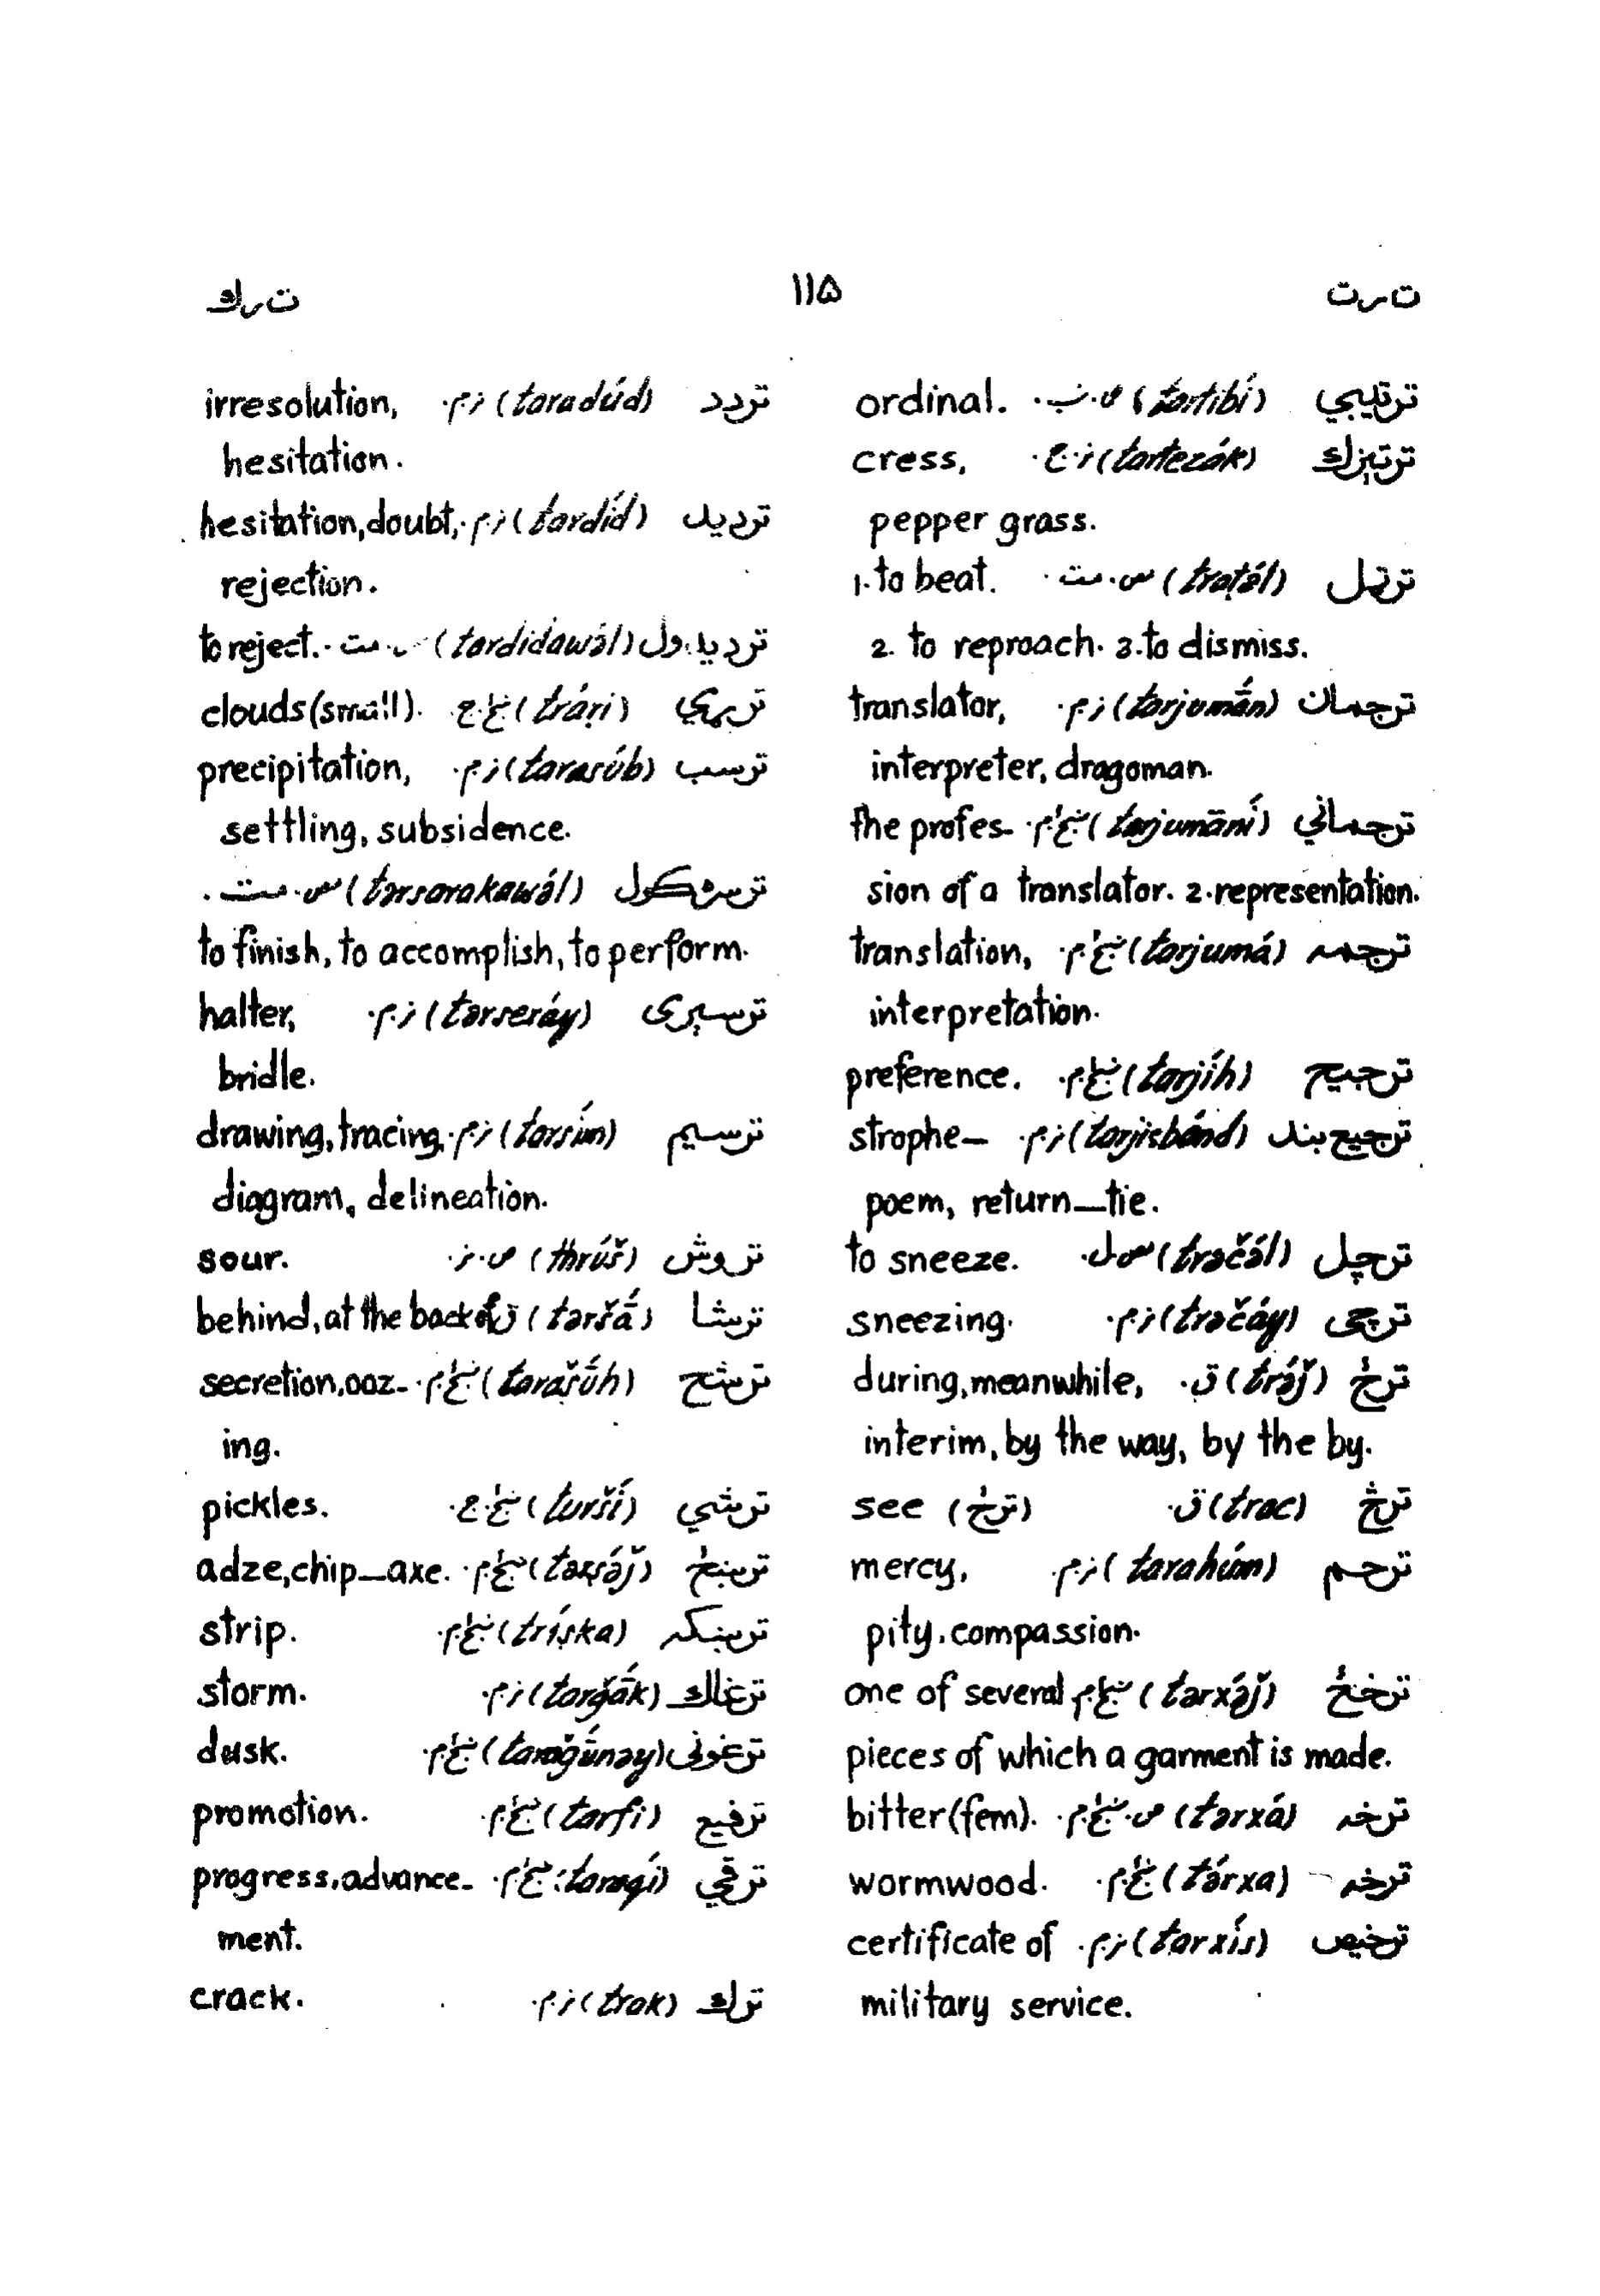 ت‌رت ۱۱۵ ت‌رك
ترتيبي (tartibí) ص.ب. ordinal.
ترتېزك (tartezák) ز.ج. cress,
pepper grass.
ترټل (traṭə́l) س.مت. 1. to beat.
2. to reproach. 3. to dismiss.
ترجمان (tarjumā́n) ز.م. translator,
interpreter, dragoman.
ترجماني (tarjumāní) ښځ.م. the profes-
sion of a translator. 2. representation.
ترجمه (tarjumá) ښځ.م. translation,
interpretation.
ترجيح (tarjíh) ښځ.م. preference.
ترجيع بند (tarjisbánd) ز.م. strophe—
poem, return—tie.
ترچل (trəčə́l) س.ل. to sneeze.
ترچى (trəčáy) ز.م. sneezing.
ترځ (trə́ǰ) ق. during, meanwhile,
interim, by the way, by the by.
ترڅ (trac) ق. see (ترځ)
ترحم (tarahúm) ز.م. mercy,
pity, compassion.
ترخځ (tərxə́ǰ) ښځ.م. one of several
pieces of which a garment is made.
ترخه (tərxá) ص.ښځ.م. bitter (fem).
ترخه (tə́rxa) ښځ.م. wormwood.
ترخيص (tarxís) ز.م. certificate of
military service.
تردد (taradúd) ز.م. irresolution,
hesitation.
ترديد (tardíd) ز.م. hesitation, doubt,
rejection.
ترديدول (tardidawə́l) س.مت. to reject.
تړري (tráṛi) ښځ.ج. clouds (small).
ترسب (tarasúb) ز.م. precipitation,
settling, subsidence.
ترسره كول (tərsarakawə́l) س.مت.
to finish, to accomplish, to perform.
ترسېرى (tərseráy) ز.م. halter,
bridle.
ترسيم (tarsím) ز.م. drawing, tracing,
diagram, delineation.
تروش (thrúš) ص.ز. sour.
ترشا (təršā́) ق. behind, at the back of
ترشح (tarašúh) ښځ.م. secretion, ooz-
ing.
ترشي (turší) ښځ.ج. pickles.
ترښځ (tərṣə́ǰ) ښځ.م. adze, chip—axe.
ترښكه (tríṣka) ښځ.م. strip.
ترغاك (tarğā́k) ز.م. storm.
ترغونى (tarağúnəy) ښځ.م. dusk.
ترفيع (tarfi) ښځ.م. promotion.
ترقي (taraqí) ښځ.م. progress, advance-
ment.
ترك (trak) ز.م. crack.